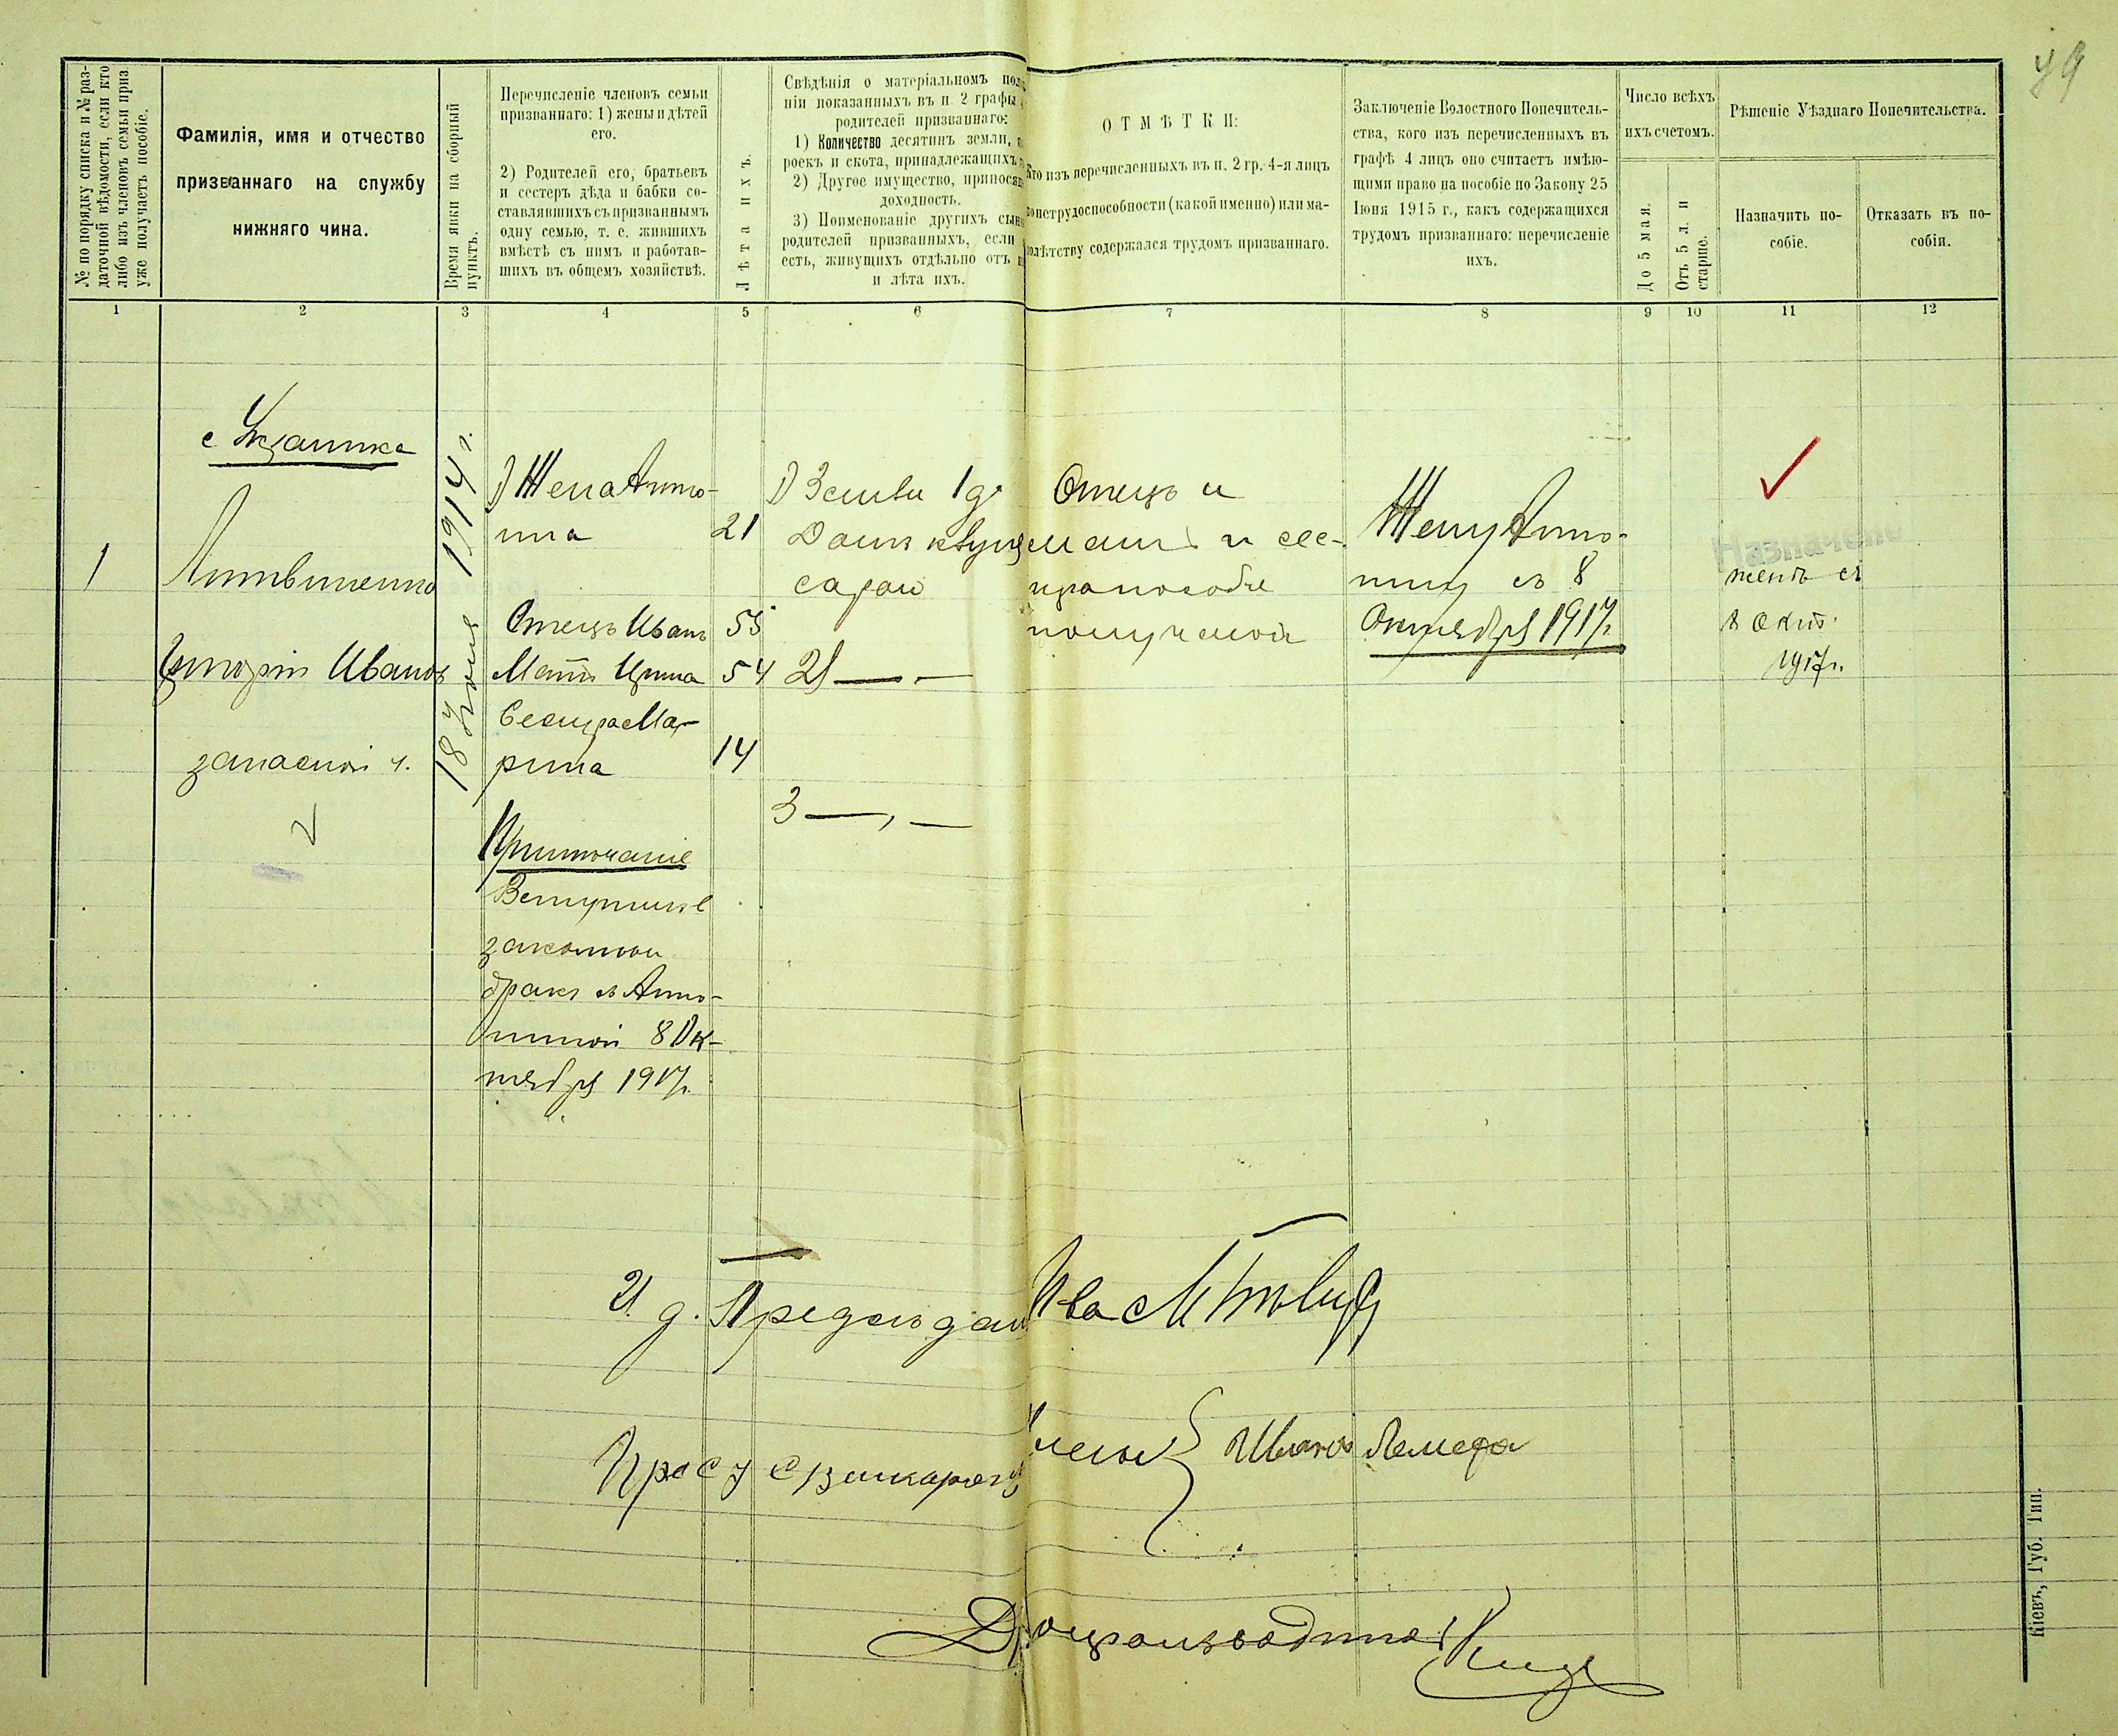 79
№ по порядку списка и № раз-
даточной вѣдомости, если кто
либо изъ членовъ семьи приз.
уже получаетъ пособіе.
Фамилія, имя и отчество
призваннаго на службу
нижняго чина.
Время явки на сборный
пунктъ.
Перечисленіе членовъ семьи
призваннаго: 1) жены и дѣтей
его.
2) Родителей его, братьевъ
и сестеръ дѣда и бабки со-
ставлявшихъ съ призваннымъ
одну семью, т. е. жившихъ
вмѣстѣ съ нимъ и работав-
шихъ въ общемъ хозяйствѣ.
Лѣта ихъ.
Свѣдѣнія о матеріальномъ пол
ніи показанныхъ въ п. 2 графы
родителей призваннаго:
1) Количество десятинъ земли,
роекъ и скота, принадлежащихъ
2) Другое имущество, принося
доходность.
3) Поименованіе другихъ сын
родителей призванныхъ, если
есть, живущихъ отдѣльно отъ
и лѣта ихъ.
ОТМѢТКИ:
Кто изъ перечисленныхъ въ п. 2 гр. 4-я лицъ
по нетрудоспособности (какой именно) или ма-
лѣтству содержался трудомъ призваннаго.
Заключеніе Волостного Попечитель-
ства, кого изъ перечисленныхъ въ
графѣ 4 лицъ оно считаетъ имѣю-
щими право на пособіе по Закону 25
Іюня 1915 г., какъ содержащихся
трудомъ призваннаго: перечисленіе
ихъ.
Число всѣхъ
ихъ счетомъ.
До 5 мая.
Отъ 5 л. и
старше.
Рѣшеніе Уѣзднаго Попечительства.
Назначить по-
собіе.
Отказать въ по-
собіи.
1 2 3 4 5 6 7 8 9 10 11 12
1
Литвиненко
Григорій Иванов
запасной ч.
18 Іюля 1914 г.
1) Жена Анто-
нина 21
Отецъ Иванъ 55
Мать Ирина 54
Сестра Ма-
рина 14
Примѣчаніе
Вступилъ въ
законный
бракъ съ Анто-
ниной 8 Ок-
тября 1917 г.
1) Земли 1 д.
Домъ
сарай
2) — „ —
3 — „ —
Отецъ и
мать и сес-
тра пособіе
получают
Жену Анто-
нину съ 8
Октября 1917 г.
Назначено
женѣ съ
8 окт.
1917 г.
И. д. Предсѣдат
Члены
Иванъ
Дѣлопроизводитель
Кіевъ, Губ. Тип.